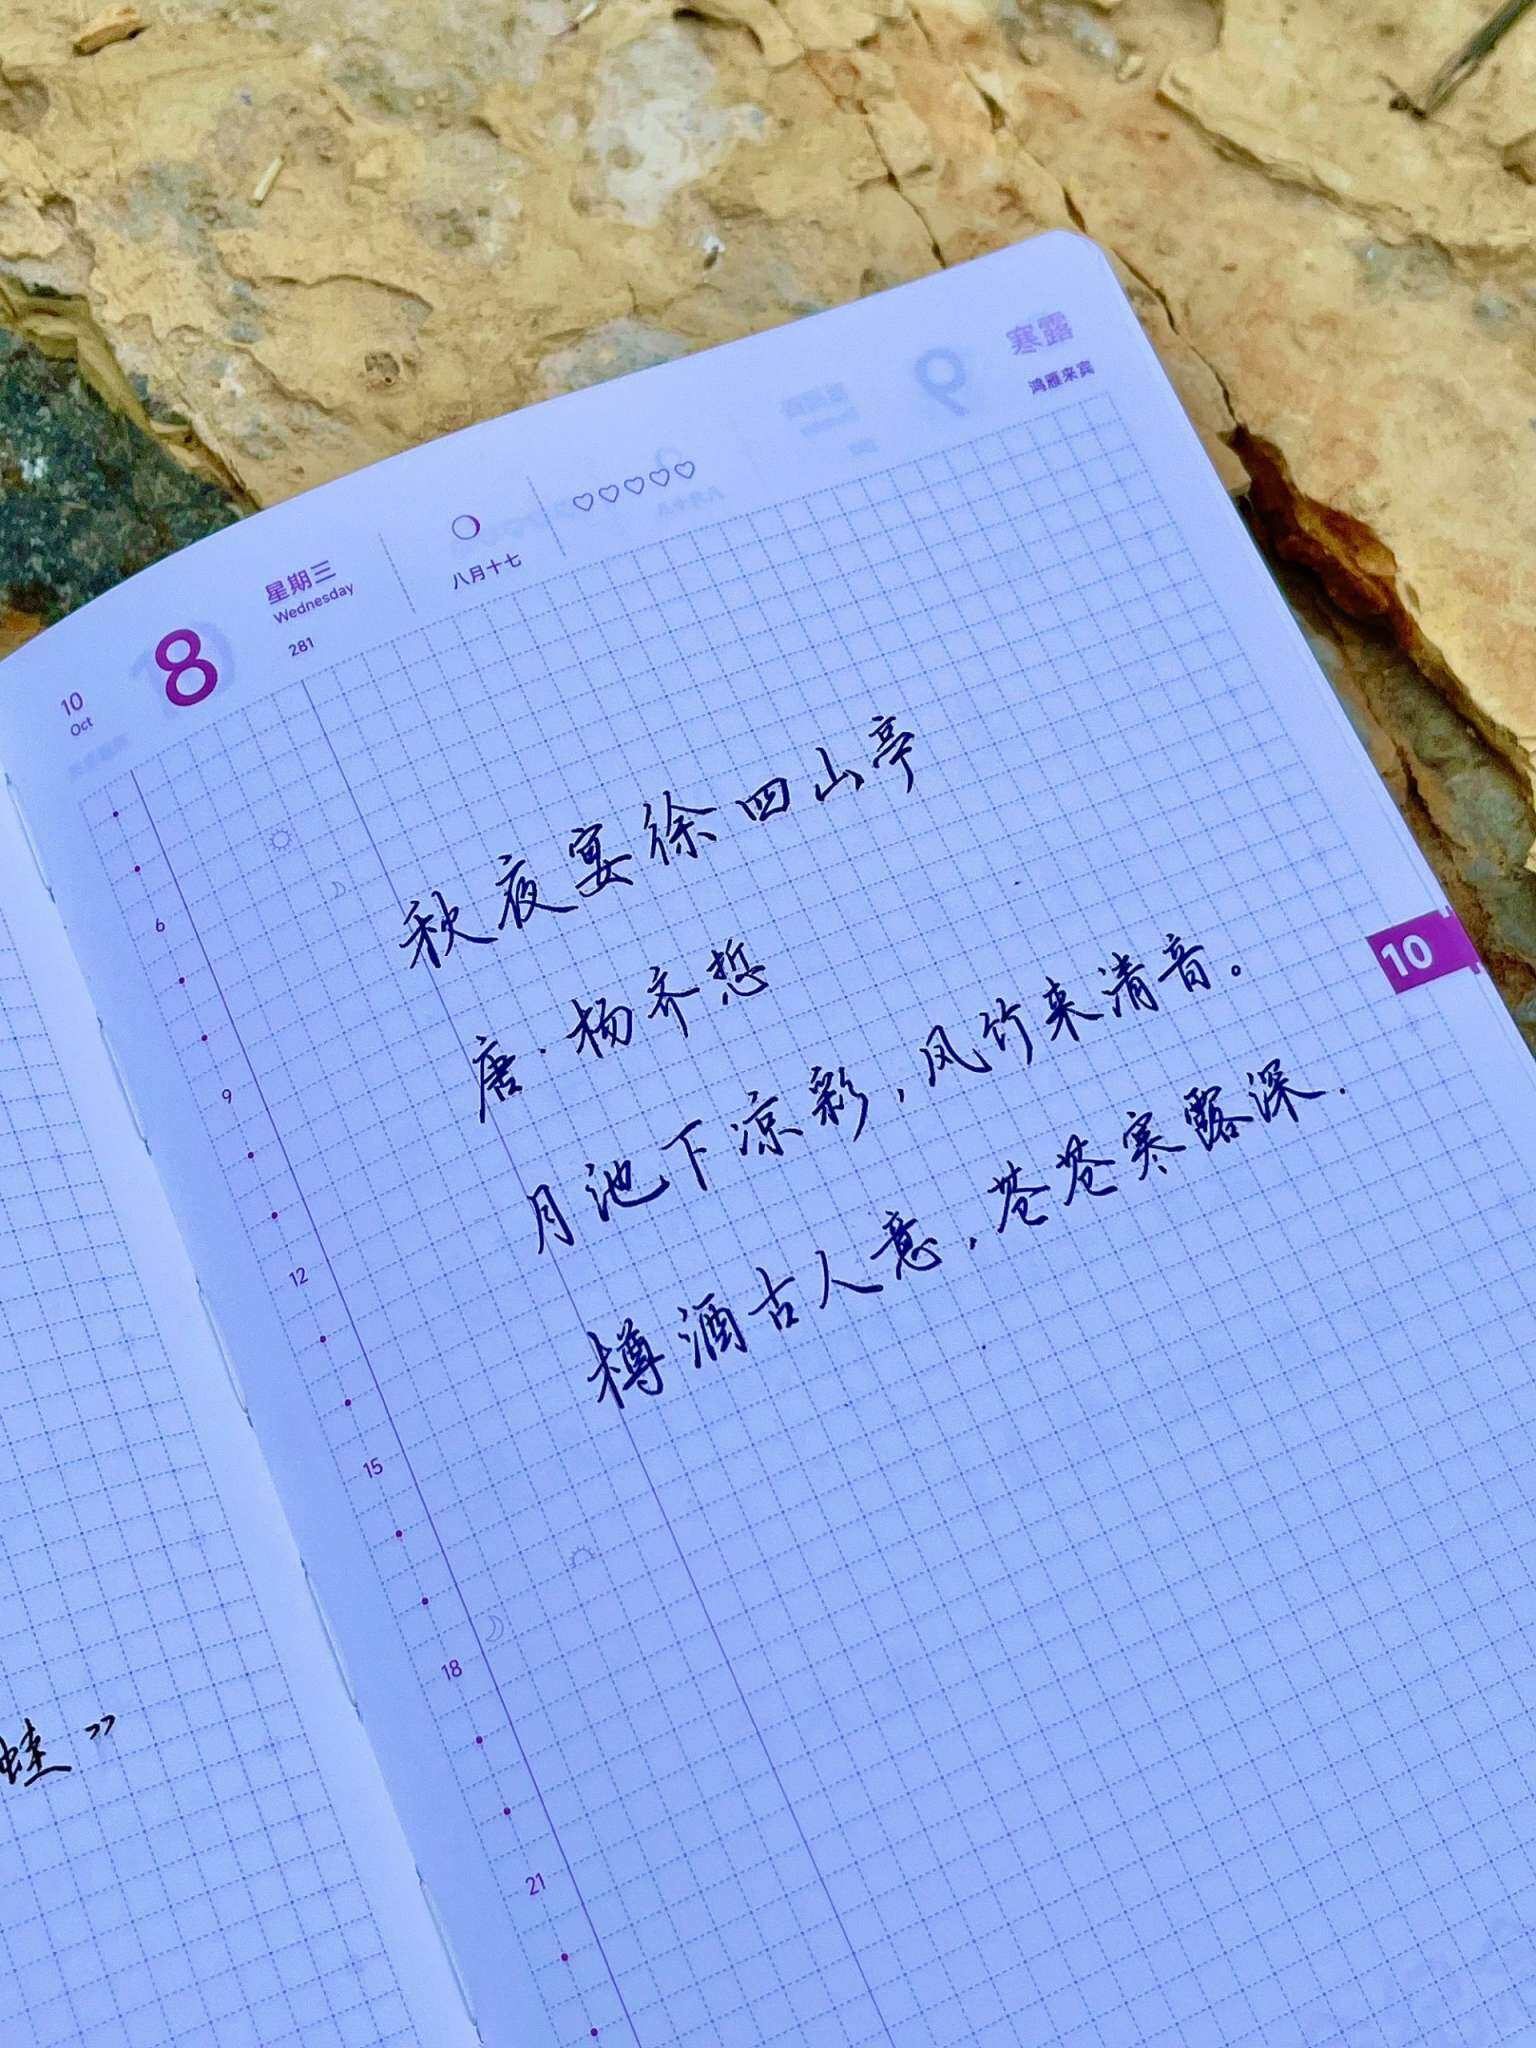 寒露
鸿雁来宾
♡♡♡♡♡
八月十七
星期三
Wednesday
281
10
Oct
8
秋夜宴徐四山亭
唐·杨齐悊
月池下凉彩，风竹来清音。
樽酒古人意，苍苍寒露深.
10
6
9
12
15
18
21
蛙”